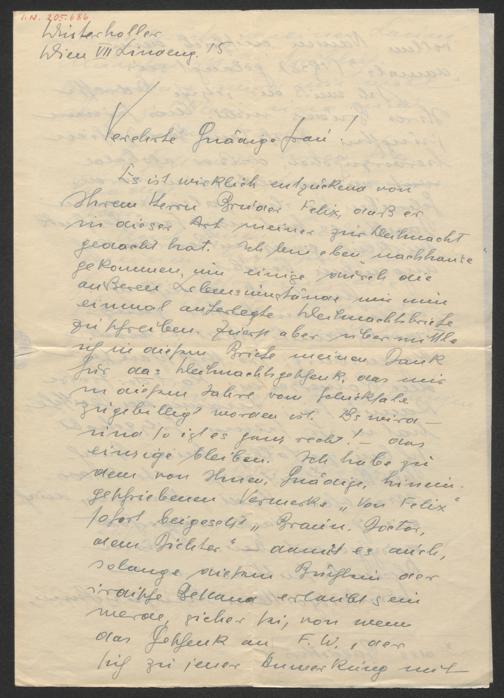 I.N. 205.686
Winterholler
Wien VII Lindeng. 15
Verehrte Gnädige Frau!
Es ist wirklich entzückend von
Ihrem Herrn Bruder Felix, daß er
in dieser Art meiner zur Weihnacht
gedacht hat. Ich bin eben nachhause
gekommen, um einige durch die
äußeren Lebensumstände mir nun
einmal auferlegte Weihnachtsbriefe
zu schreiben. Zuerst aber übermittle
ich in diesem Briefe meinen Dank
für das Weihnachtsgeschenk, das mir
in diesem Jahre vom Schicksale
zugebilligt worden ist. Es wird –
und so ist es ganz recht! – das
einzige bleiben. Ich habe zu
dem von Ihnen, Gnädige, hinein-
geschriebenen Vermerke „Von Felix"
sofort beigesetzt „Braun. Doctor,
dem Dichter" damit es auch,
solange diesem Büchlein der
irdische Bestand erlaubt sein
werde, sicher sei, von wem
das Geschenk an F. W., der
sich zu jener Anmerkung mit